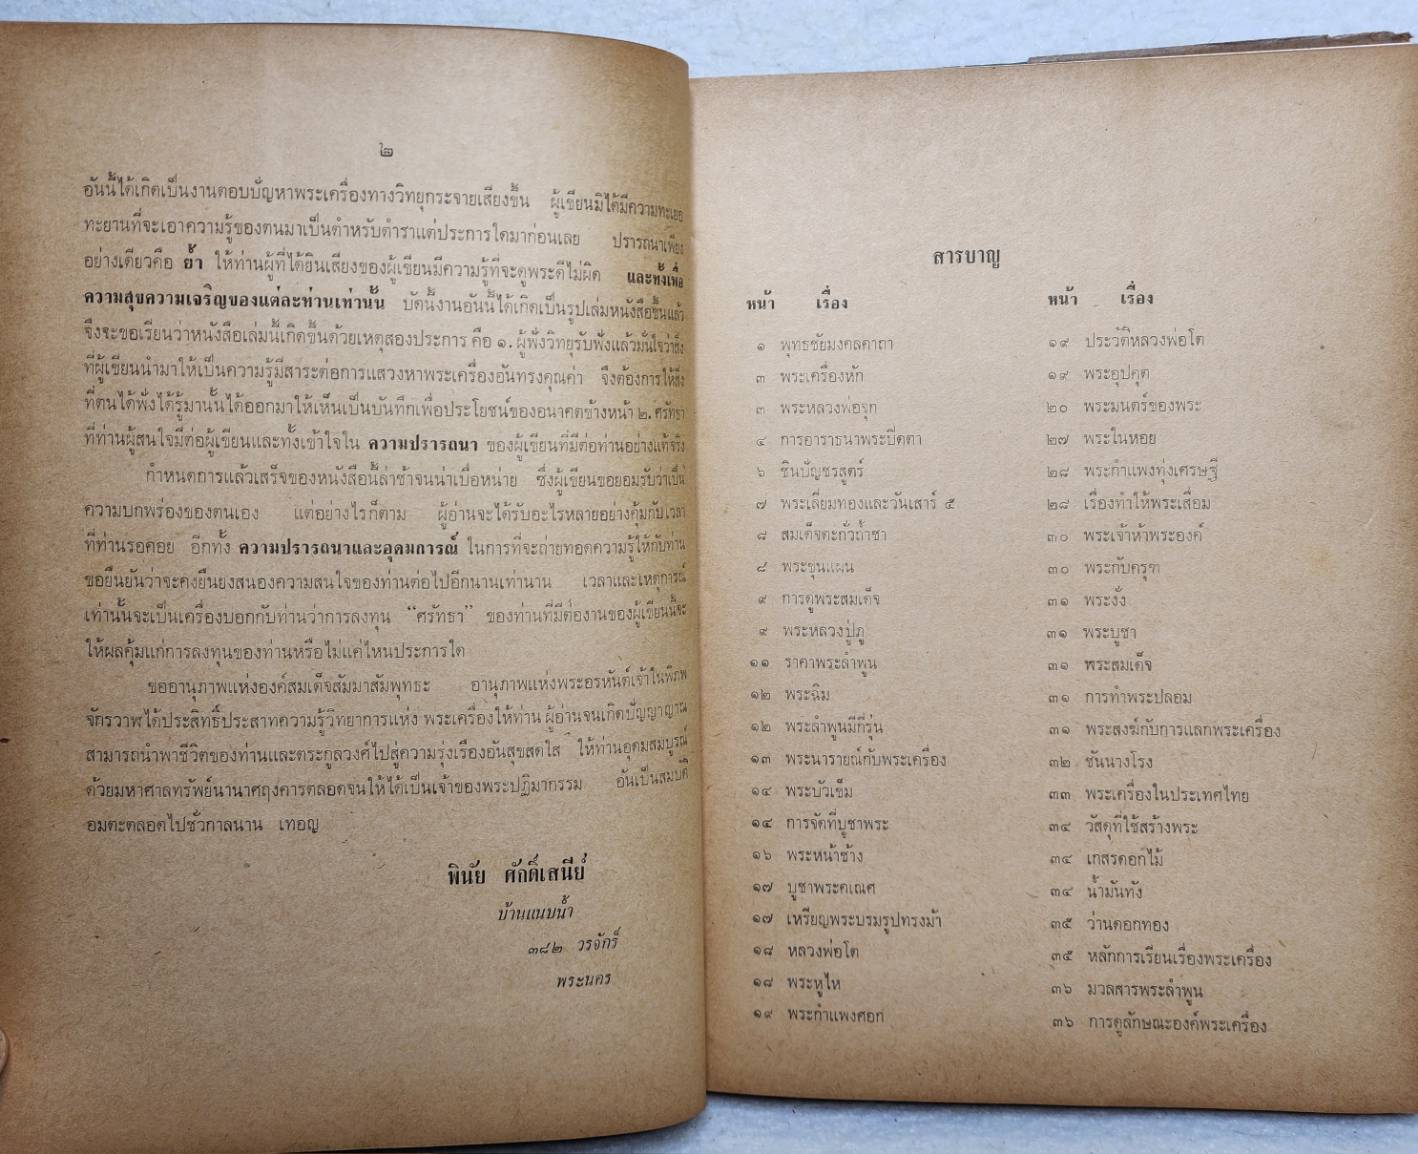 ๒
อันนี้ได้เกิดเป็นงานตอบปัญหาพระเครื่องทางวิทยุกระจายเสียงขึ้น ผู้เขียนมิได้มีความทะเยอ
ทะยานที่จะเอาความรู้ของตนมาเป็นตำหรับตำราแต่ประการใดมาก่อนเลย ปรารถนาเพียง
อย่างเดียวคือ ย้ำ ให้ท่านผู้ที่ได้ยินเสียงของผู้เขียนมีความรู้ที่จะดูพระดีไม่ผิด และทั้งเพื่อ
ความสุขความเจริญของแต่ละท่านเท่านั้น บัดนี้งานอันนี้ได้เกิดเป็นรูปเล่มหนังสือขึ้นแล้ว
จึงจะขอเรียนว่าหนังสือเล่มนี้เกิดขึ้นด้วยเหตุสองประการ คือ ๑. ผู้ฟังวิทยุรับฟังแล้วมั่นใจว่าสิ่ง
ที่ผู้เขียนนำมาให้เป็นความรู้มีสาระต่อการแสวงหาพระเครื่องอันทรงคุณค่า จึงต้องการให้สิ่ง
ที่ตนได้ฟังได้รู้มานั้นได้ออกมาให้เห็นเป็นบันทึกเพื่อประโยชน์ของอนาคตข้างหน้า ๒. ศรัทธา
ที่ท่านผู้สนใจมีต่อผู้เขียนและทั้งเข้าใจใน ความปรารถนา ของผู้เขียนที่มีต่อท่านอย่างแท้จริง
กำหนดการแล้วเสร็จของหนังสือนี้ล่าช้าจนน่าเบื่อหน่าย ซึ่งผู้เขียนขอยอมรับว่าเป็น
ความบกพร่องของตนเอง แต่อย่างไรก็ตาม ผู้อ่านจะได้รับอะไรหลายอย่างคุ้มกับเวลา
ที่ท่านรอคอย อีกทั้ง ความปรารถนาและอุดมการณ์ ในการที่จะถ่ายทอดความรู้ให้กับท่าน
ขอยืนยันว่าจะคงยืนยงสนองความสนใจของท่านต่อไปอีกนานเท่านาน เวลาและเหตุการณ์
เท่านั้นจะเป็นเครื่องบอกกับท่านว่าการลงทุน “ศรัทธา” ของท่านที่มีต่องานของผู้เขียนนี้จะ
ให้ผลคุ้มแก่การลงทุนของท่านหรือไม่แค่ไหนประการใด
ขออานุภาพแห่งองค์สมเด็จสัมมาสัมพุทธะ อานุภาพแห่งพระอรหันต์เจ้าในพิภพ
จักรวาฬได้ประสิทธิ์ประสาทความรู้วิทยาการแห่ง พระเครื่องให้ท่าน ผู้อ่านจนเกิดปัญญาญาณ
สามารถนำพาชีวิตของท่านและตระกูลวงศ์ไปสู่ความรุ่งเรืองอันสุขสดใส ให้ท่านอุดมสมบูรณ์
ด้วยมหาศาลทรัพย์นานาศฤงคารตลอดจนให้ได้เป็นเจ้าของพระปฏิมากรรม อันเป็นสมบัติ
อมตะตลอดไปชั่วกาลนาน เทอญ
พินัย ศักดิ์เสนีย์
บ้านแนบน้ำ
๓๘๒ วรจักร์
พระนคร
สารบาญ
หน้า เรื่อง
๑ พุทธชัยมงคลคาถา
๓ พระเครื่องหัก
๓ พระหลวงพ่อจุก
๔ การอาราธนาพระปิดตา
๖ ชินบัญชรสูตร์
๗ พระเลี่ยมทองและวันเสาร์ ๕
๘ สมเด็จตะกั่วถ้ำชา
๘ พระขุนแผน
๙ การดูพระสมเด็จ
๙ พระหลวงปู่ภู
๑๑ ราคาพระลำพูน
๑๒ พระฉิม
๑๒ พระลำพูนมีกี่รุ่น
๑๓ พระนารายณ์กับพระเครื่อง
๑๔ พระบัวเข็ม
๑๔ การจัดที่บูชาพระ
๑๖ พระหน้าช้าง
๑๗ บูชาพระคเณศ
๑๗ เหรียญพระบรมรูปทรงม้า
๑๘ หลวงพ่อโต
๑๘ พระหูไห
๑๙ พระกำแพงศอก
หน้า เรื่อง
๑๙ ประวัติหลวงพ่อโต
๑๙ พระอุปคุต
๒๐ พระมนตร์ของพระ
๒๗ พระในหอย
๒๘ พระกำแพงทุ่งเศรษฐี
๒๘ เรื่องทำให้พระเสื่อม
๓๐ พระเจ้าห้าพระองค์
๓๐ พระกับครุฑ
๓๑ พระงั่ง
๓๑ พระบูชา
๓๑ พระสมเด็จ
๓๑ การทำพระปลอม
๓๑ พระสงฆ์กับการแลกพระเครื่อง
๓๒ ชันนางโรง
๓๓ พระเครื่องในประเทศไทย
๓๔ วัสดุที่ใช้สร้างพระ
๓๔ เกสรดอกไม้
๓๔ น้ำมันทัง
๓๕ ว่านดอกทอง
๓๕ หลักการเรียนเรื่องพระเครื่อง
๓๖ มวลสารพระลำพูน
๓๖ การดูลักษณะองค์พระเครื่อง